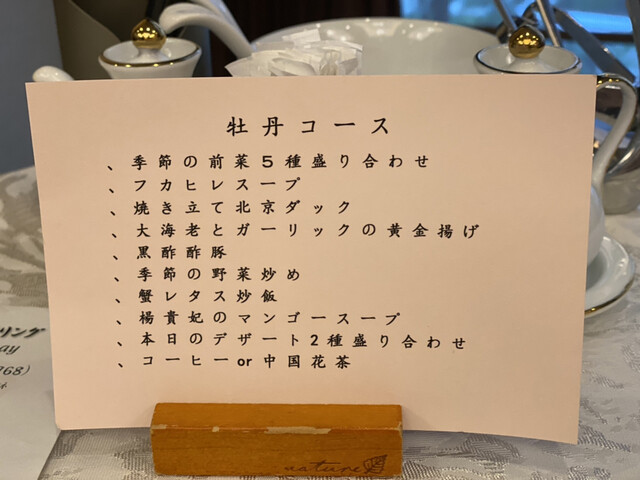 牡丹コース
、季節の前菜5種盛り合わせ
、フカヒレスープ
、焼き立て北京ダック
、大海老とガーリックの黄金揚げ
、黒酢酢豚
、季節の野菜炒め
、蟹レタス炒飯
、楊貴妃のマンゴースープ
、本日のデザート2種盛り合わせ
、コーヒーor中国花茶
リング
ay
368)
nature